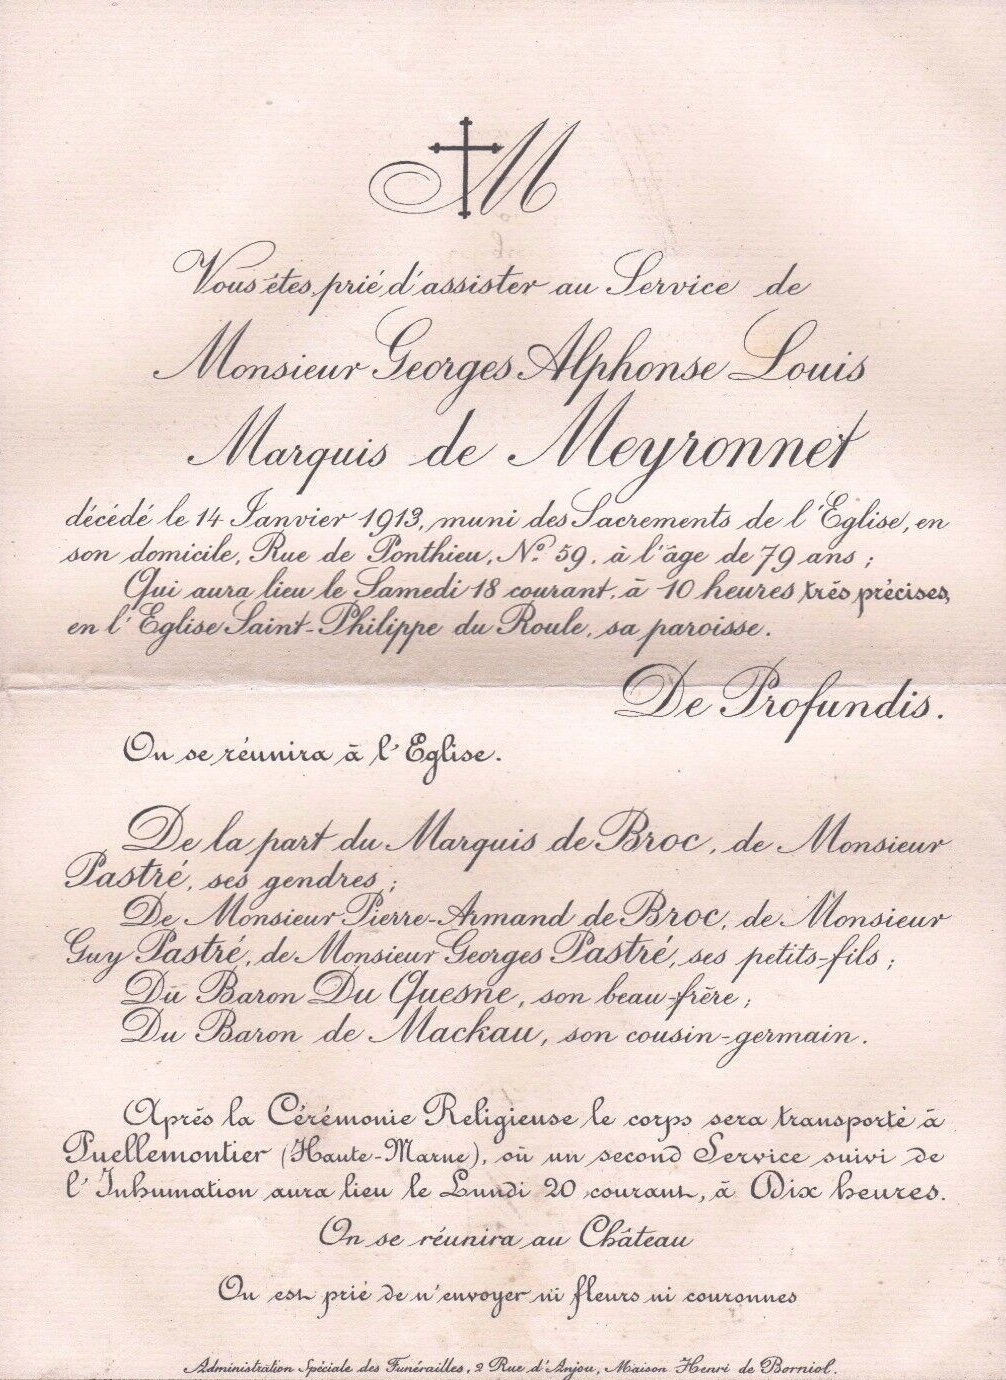 M
Vous êtes prié d'assister au Service de
Monsieur Georges Alphonse Louis
Marquis de Meyronnet
décédé le 14 Janvier 1913, muni des Sacrements de l'Eglise, en
son domicile, Rue de Ponthieu, Nº 59, à l'âge de 79 ans ;
Qui aura lieu le Samedi 18 courant, à 10 heures très précises,
en l'Eglise Saint-Philippe du Roule, sa paroisse.
De Profundis.
On se réunira à l'Eglise.
De la part du Marquis de Broc, de Monsieur
Pastré, ses gendres ;
De Monsieur Pierre-Armand de Broc, de Monsieur
Guy Pastré, de Monsieur Georges Pastré, ses petits-fils ;
Du Baron Du Quesne, son beau-frère ;
Du Baron de Mackau, son cousin-germain.
Après la Cérémonie Religieuse le corps sera transporté à
Puellemontier (Haute-Marne), où un second Service suivi de
l'Inhumation aura lieu le Lundi 20 courant, à Dix heures.
On se réunira au Château
On est prié de n'envoyer ni fleurs ni couronnes
Administration Spéciale des Funérailles, 2 Rue d'Anjou, Maison Henri de Borniol.